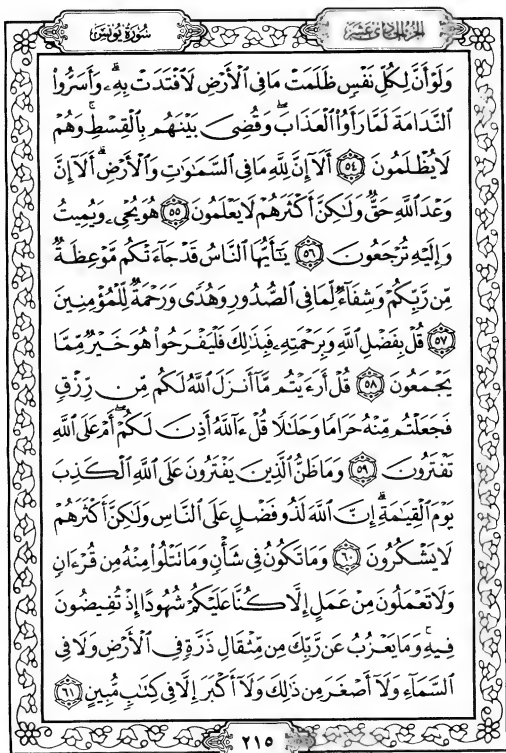 سُورَةُ يُونُسَ
الجُزءُ الحَادِي عَشَر
وَلَوْ أَنَّ لِكُلِّ نَفْسٍ ظَلَمَتْ مَا فِي ٱلْأَرْضِ لَٱفْتَدَتْ بِهِۦۗ وَأَسَرُّوا۟
ٱلنَّدَامَةَ لَمَّا رَأَوُا۟ ٱلْعَذَابَۖ وَقُضِىَ بَيْنَهُم بِٱلْقِسْطِۚ وَهُمْ
لَا يُظْلَمُونَ ٥٤ أَلَآ إِنَّ لِلَّهِ مَا فِي ٱلسَّمَٰوَٰتِ وَٱلْأَرْضِۗ أَلَآ إِنَّ
وَعْدَ ٱللَّهِ حَقٌّ وَلَٰكِنَّ أَكْثَرَهُمْ لَا يَعْلَمُونَ ٥٥ هُوَ يُحْىِۦ وَيُمِيتُ
وَإِلَيْهِ تُرْجَعُونَ ٥٦ يَٰٓأَيُّهَا ٱلنَّاسُ قَدْ جَآءَتْكُم مَّوْعِظَةٌ
مِّن رَّبِّكُمْ وَشِفَآءٌ لِّمَا فِي ٱلصُّدُورِ وَهُدًى وَرَحْمَةٌ لِّلْمُؤْمِنِينَ
٥٧ قُلْ بِفَضْلِ ٱللَّهِ وَبِرَحْمَتِهِۦ فَبِذَٰلِكَ فَلْيَفْرَحُوا۟ هُوَ خَيْرٌ مِّمَّا
يَجْمَعُونَ ٥٨ قُلْ أَرَءَيْتُم مَّآ أَنزَلَ ٱللَّهُ لَكُم مِّن رِّزْقٍ
فَجَعَلْتُم مِّنْهُ حَرَامًا وَحَلَٰلًا قُلْ ءَآللَّهُ أَذِنَ لَكُمْۖ أَمْ عَلَى ٱللَّهِ
تَفْتَرُونَ ٥٩ وَمَا ظَنُّ ٱلَّذِينَ يَفْتَرُونَ عَلَى ٱللَّهِ ٱلْكَذِبَ
يَوْمَ ٱلْقِيَٰمَةِۗ إِنَّ ٱللَّهَ لَذُو فَضْلٍ عَلَى ٱلنَّاسِ وَلَٰكِنَّ أَكْثَرَهُمْ
لَا يَشْكُرُونَ ٦٠ وَمَا تَكُونُ فِي شَأْنٍ وَمَا تَتْلُوا۟ مِنْهُ مِن قُرْءَانٍ
وَلَا تَعْمَلُونَ مِنْ عَمَلٍ إِلَّا كُنَّا عَلَيْكُمْ شُهُودًا إِذْ تُفِيضُونَ
فِيهِۚ وَمَا يَعْزُبُ عَن رَّبِّكَ مِن مِّثْقَالِ ذَرَّةٍ فِي ٱلْأَرْضِ وَلَا فِي
ٱلسَّمَآءِ وَلَآ أَصْغَرَ مِن ذَٰلِكَ وَلَآ أَكْبَرَ إِلَّا فِي كِتَٰبٍ مُّبِينٍ ٦١
٢١٥